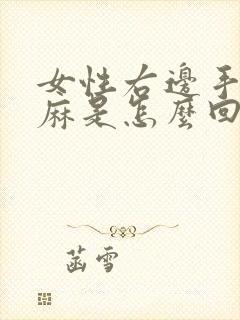 女性右邊手
麻是怎麼回
菡雪